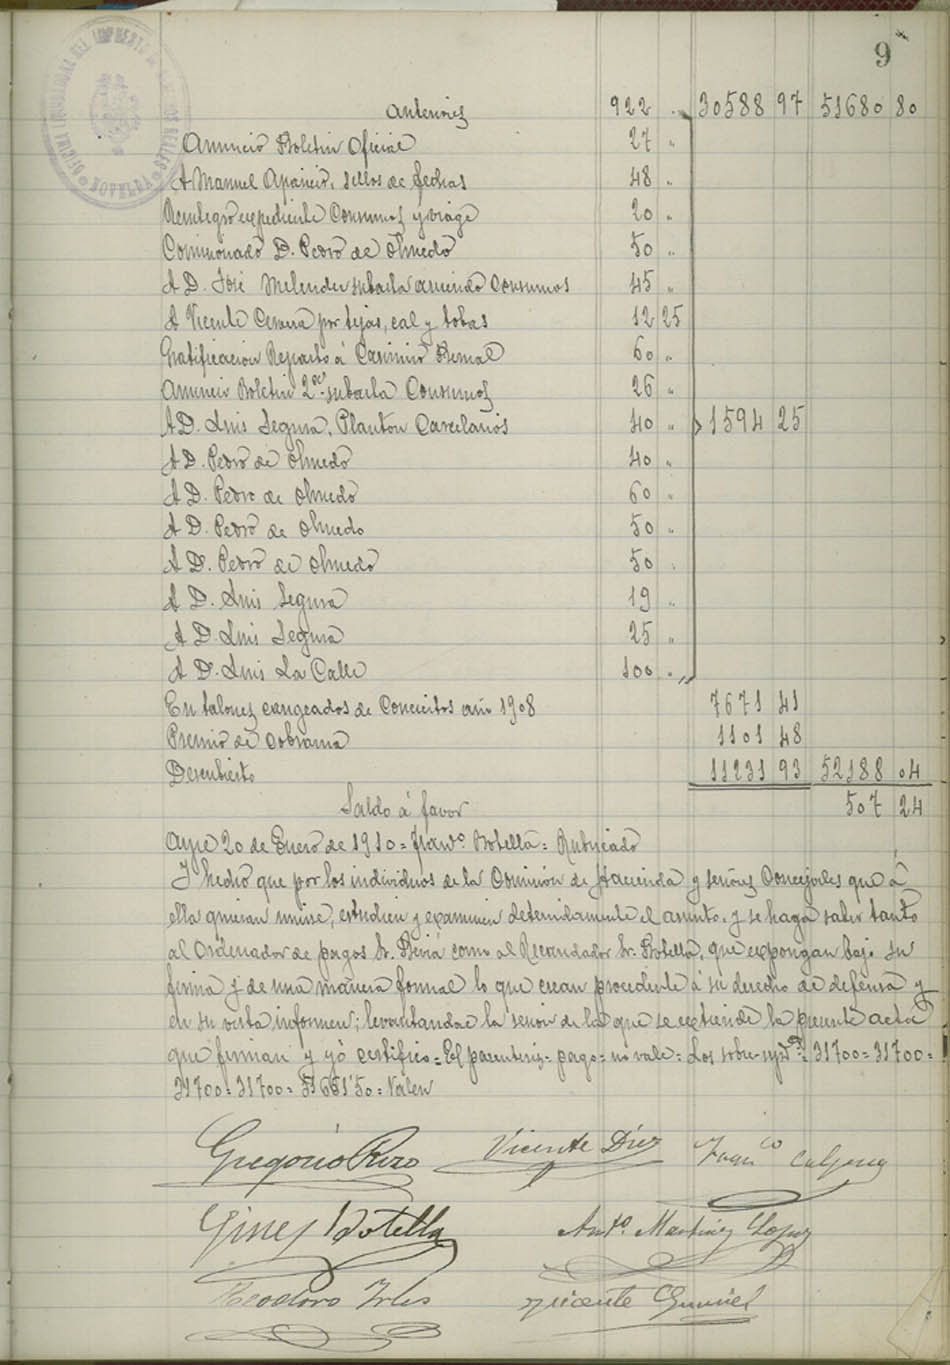 9
OFICINA LIQUIDADORA DEL IMPUESTO DE DERECHOS REALES NOVELDA
Anteriores 922 " 30588 97 51680 80
Anuncio Boletin Oficial 27 "
A Manuel Aparicio, sellos de fechas 48 "
Reintegro expediente Consumos y viage 20 "
Comisionado D. Pedro de Olmedo 50 "
A D. José Melendez subasta arriendo Consumos 45 "
A Vicente Cervera por tejas, cal y tobas 12 25
Gratificacion Reparto á Casimiro Bernal 60 "
Anuncio Boletin 2ª subasta Consumos 26 "
A D. Luis Segura, Planton Carcelarios 40 " 1594 25
A D. Pedro de Olmedo 40 "
A D. Pedro de Olmedo 60 "
A D. Pedro de Olmedo 50 "
A D. Pedro de Olmedo 50 "
A D. Luis Segura 19 "
A D. Luis Segura 25 "
A D. Luis La Calle 100 "
En talones cangeados de Conceitos año 1908 7671 41
Premio de cobranza 1101 48
Descubierto 11231 93 52188 04
Saldo á favor 507 24
Aspe 20 de Enero de 1910 = Franco. Botella = Rubricado
Y hecho que por los individuos de la Comision de Hacienda y señores Concejales que á
ella quieran unirse, estudien y examinen detenidamente el asunto, y se haga saber tanto
al Ordenador de pagos Sr. Beviá como al Recaudador Sr. Botella, que expongan bajo su
firma y de una manera formal lo que crean procedente á su derecho de defensa y
en su vista informen; levantandose la sesion de la que se extiende la presente acta
que firman y yó certifico = El parentesis = pago = no vale = Los sobre-rpdos = 31700 = 31700 =
31700 = 31700 = 51651'50 = Valen
Gregorio Rizo Vicente Diez Franco Calpena
Gines Botella Anto. Martinez Lopez
Teodoro Irles Vicente